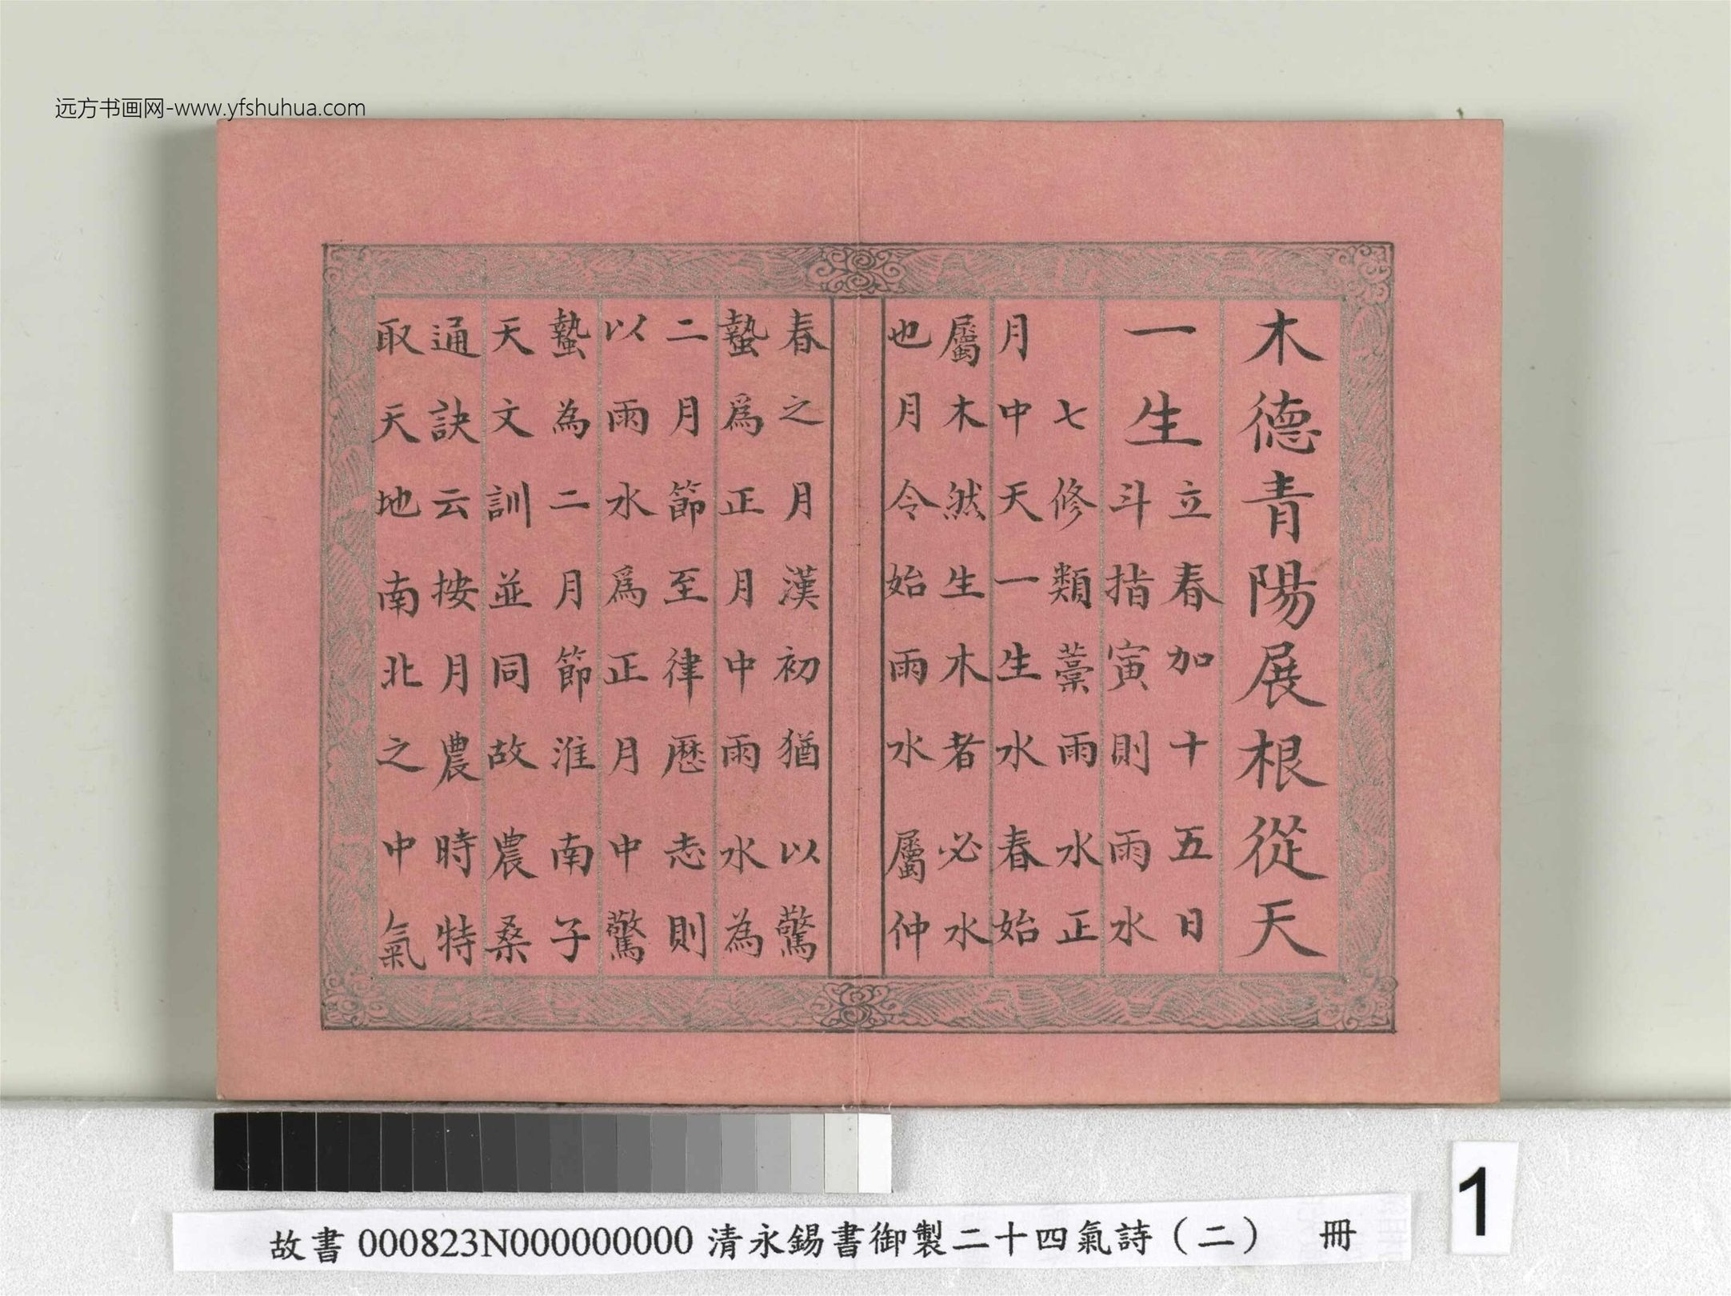 远方书画网-www.yfshuhua.com
木德青陽展根從天
一生
立春加十五日
斗指寅則雨水
七修類藁雨水正
月中天一生水春始
屬木然生木者必水
也月令始雨水屬仲
春之月漢初猶以驚
蟄爲正月中雨水為
二月節至律歷志則
以雨水爲正月中驚
蟄為二月節淮南子
天文訓並同故農桑
通訣云按月農時特
取天地南北之中氣
故書000823N000000000清永錫書御製二十四氣詩（二） 冊
1